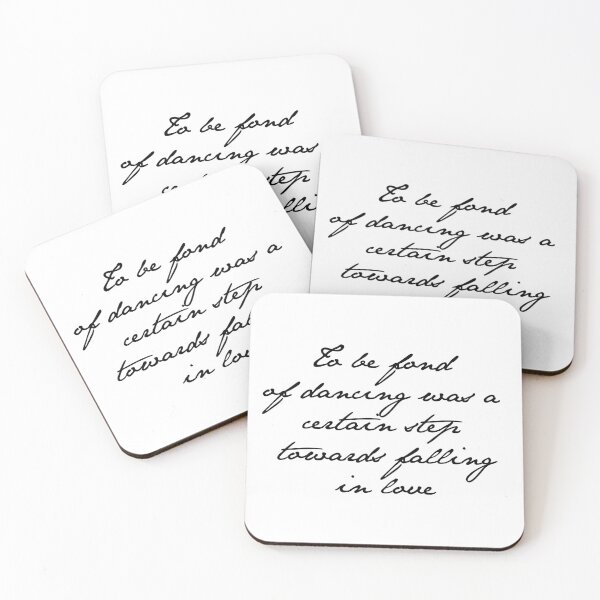 To be fond
of dancing was
step
To be fond
of dancing was a
certain step
towards falling
To be fond
of dancing was a
certain step
towards
in
To be fond
of dancing was a
certain step
towards falling
in love